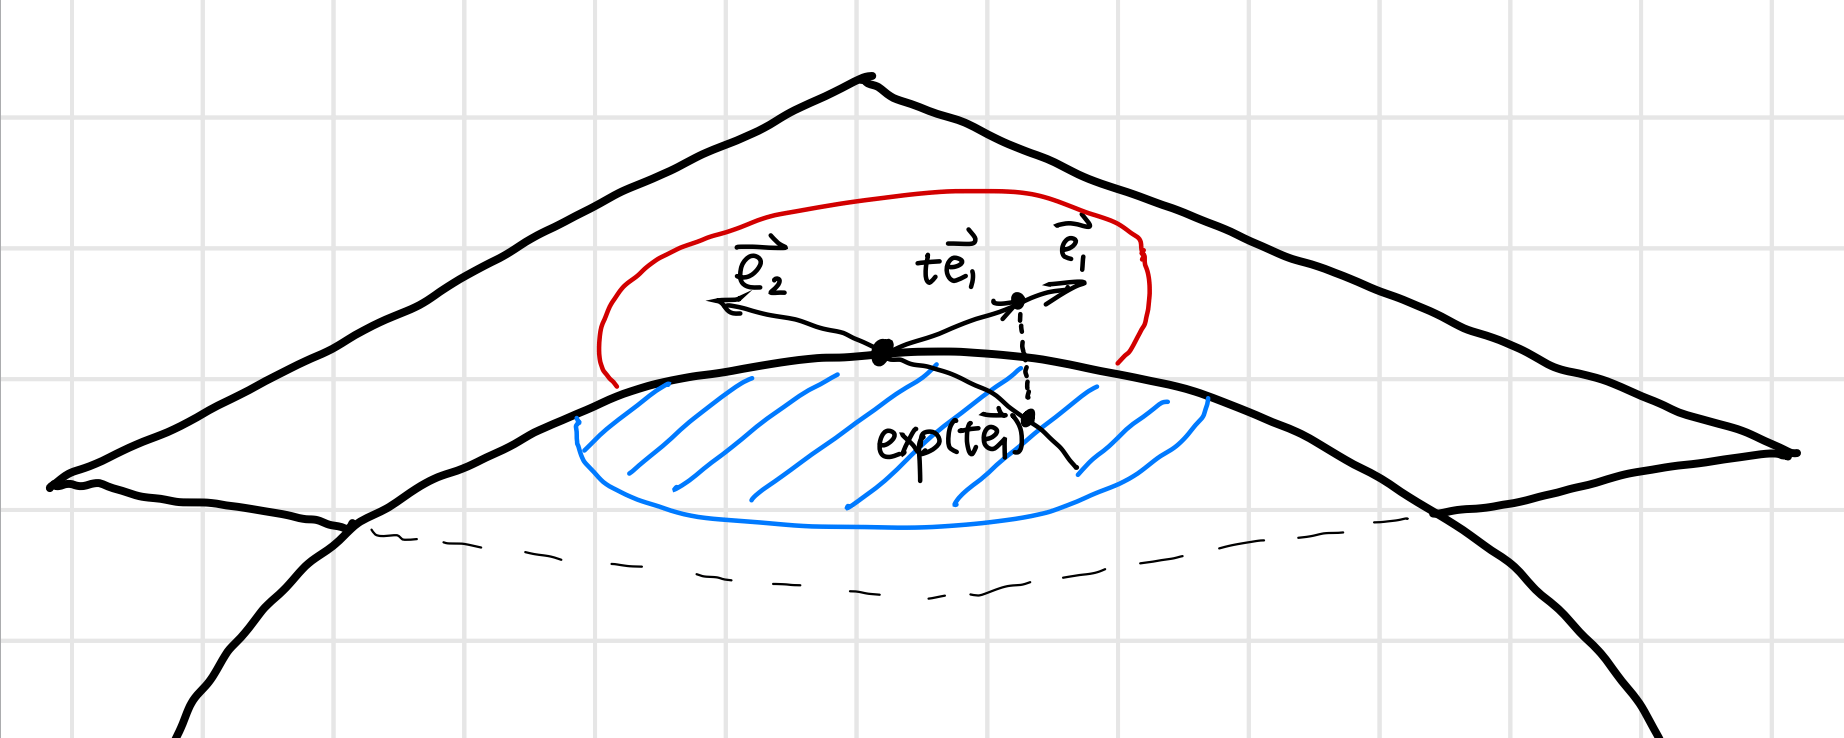 e⃗₂
te⃗₁
e⃗₁
exp(te⃗₁)